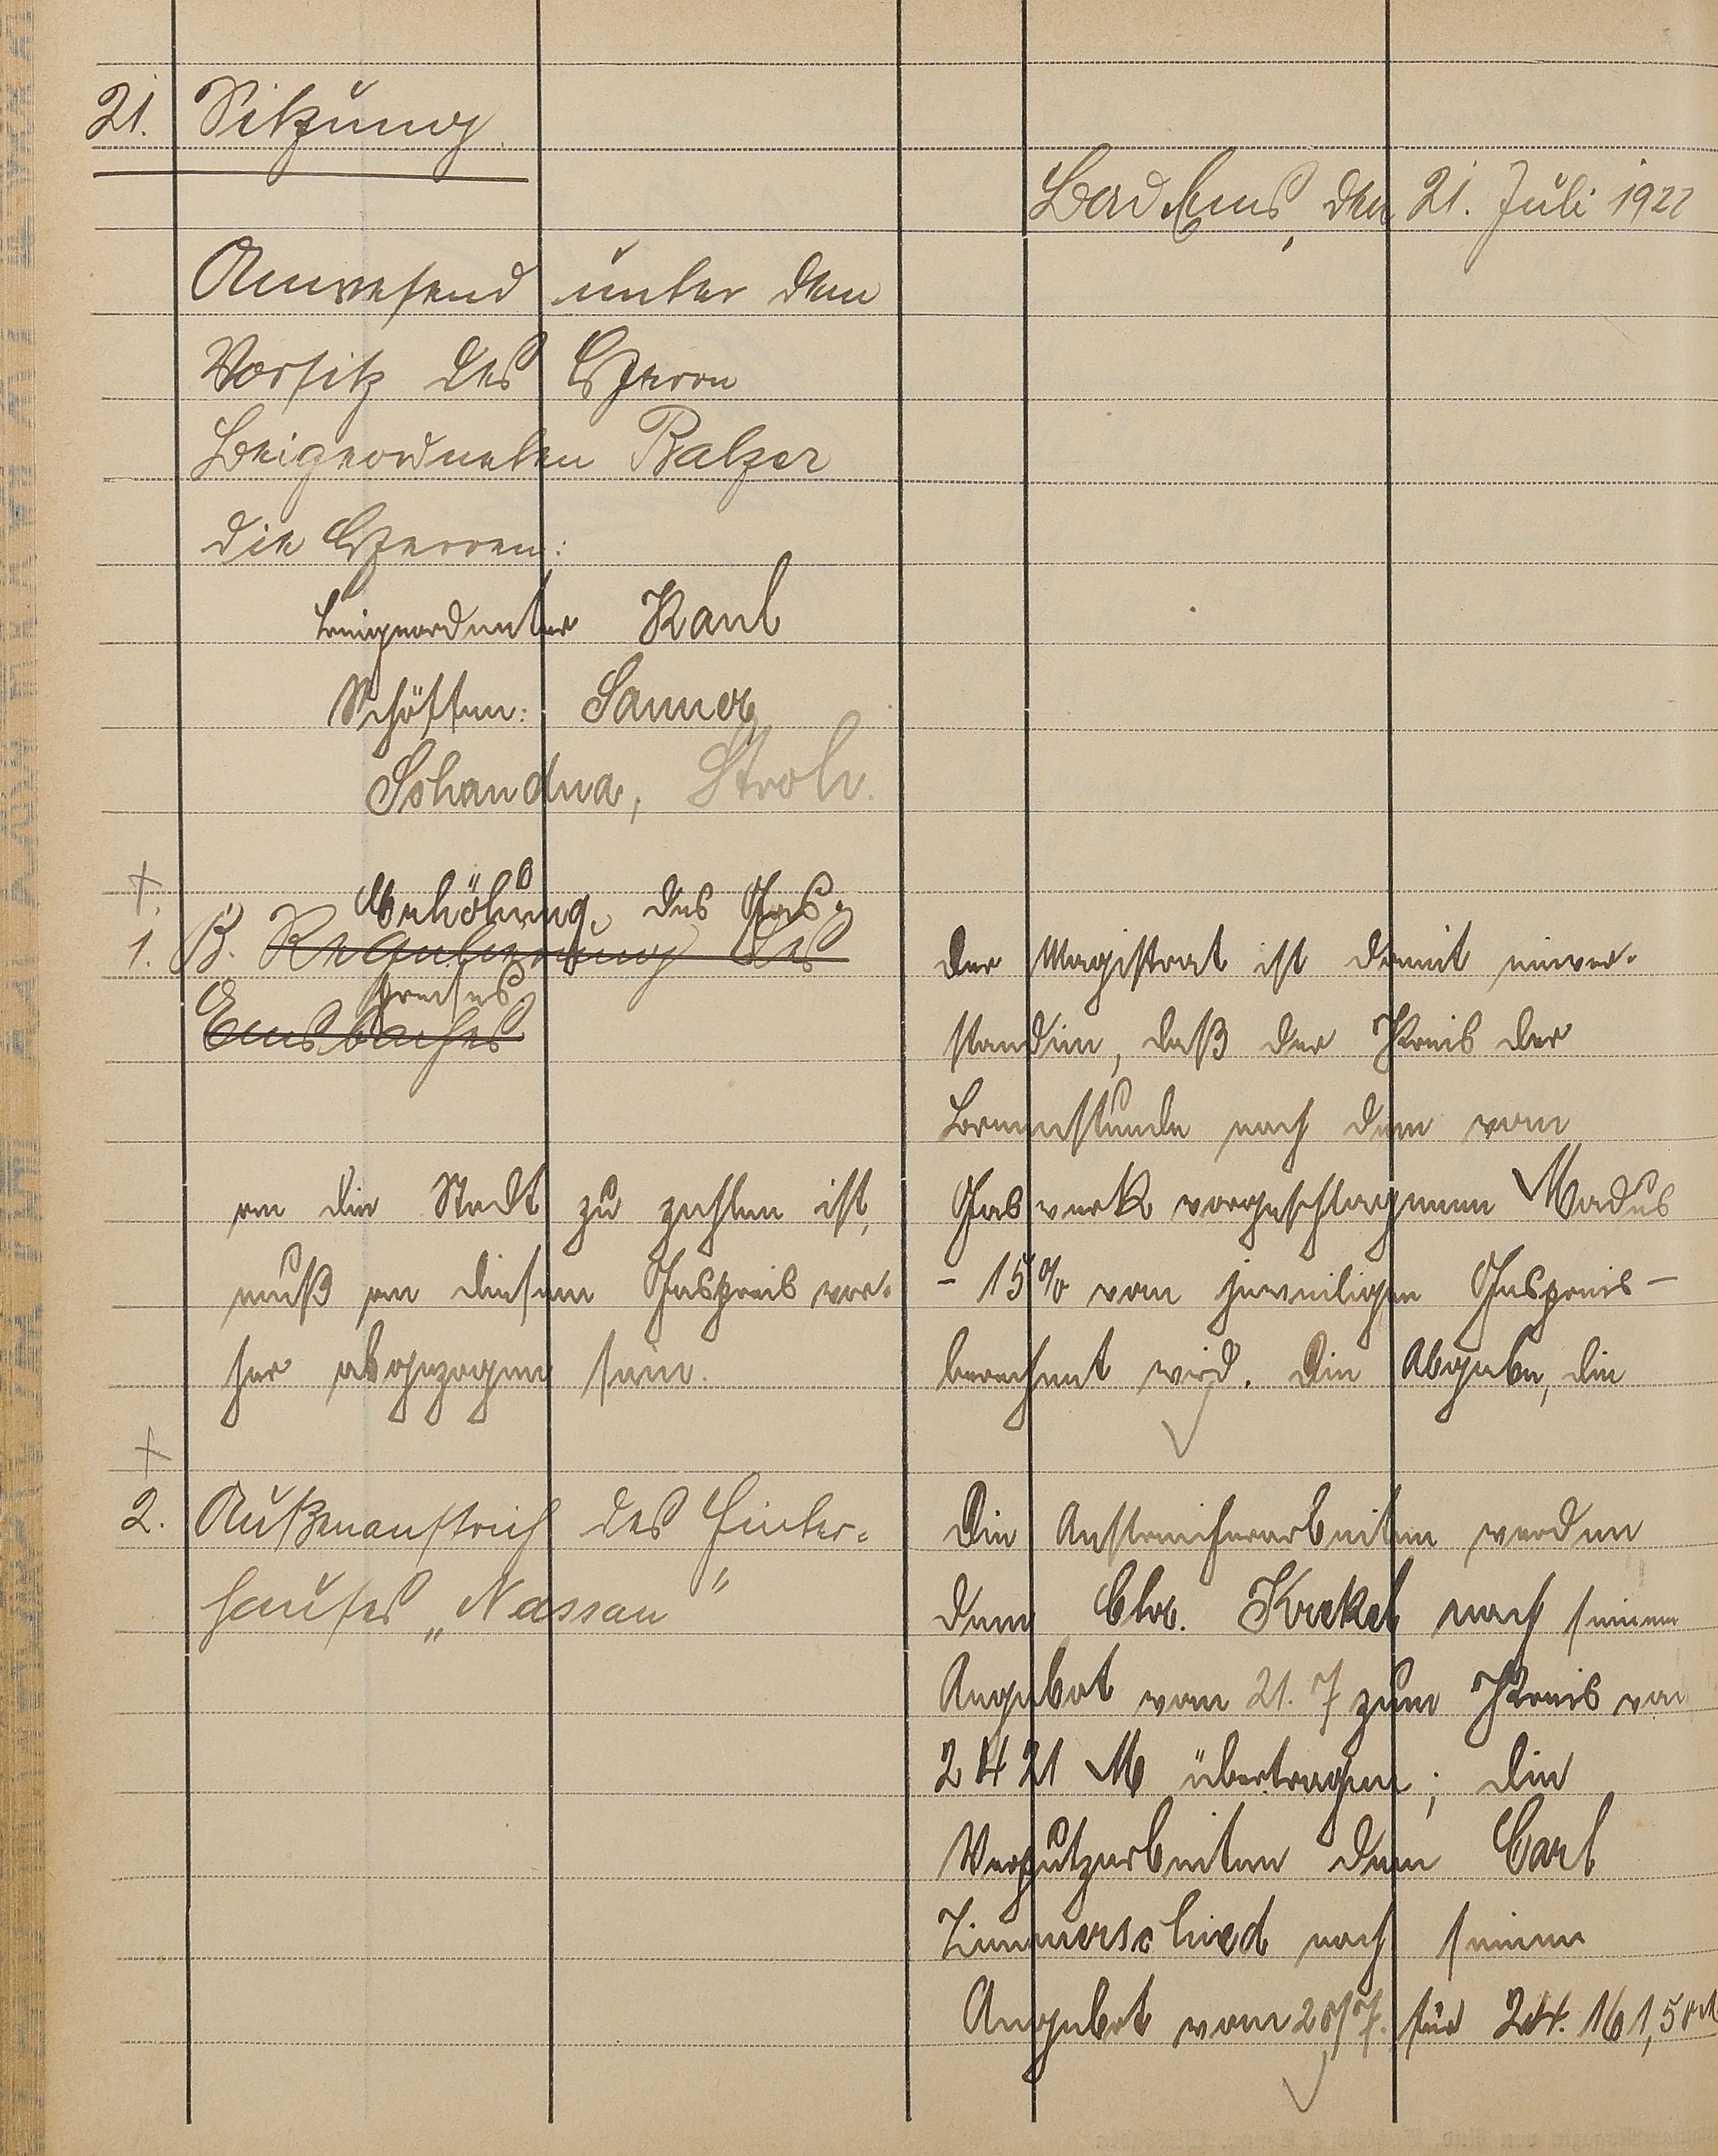 21. Sitzung.
Bad Ems, den 21. Juli 1922
Anwesend unter dem
Vorsitz des Herrn
Beigeordneten Balzer
die Herren:
Beigeordneter Kaul
Schöffen: Sanner
Schandua, Stroh.
Erhöhung des Gas-
1. B. Regulierung des
preises
Emsbaches
Der Magistrat ist damit einver-
standen, daß der Preis der
Brennstunde nach dem vom
Gaswerk vorgeschlagenen Modus
- 15% vom jeweiligen Gaspreis -
berechnet wird. Die Abgabe, die
an die Stadt zu zahlen ist,
muß an diesem Gaspreis vor-
her abgezogen sein.
2. Außenanstrich des Hinter-
hauses „Nassau"
Die Anstreicherarbeiten werden
dem Chr. Krekel nach seinem
Angebot vom 21.7 zum Preis von
2421 M übertragen; die
Verputzarbeiten dem Carl
Zimmerschied nach seinem
Angebot vom 20/7. für 24.161,50 M